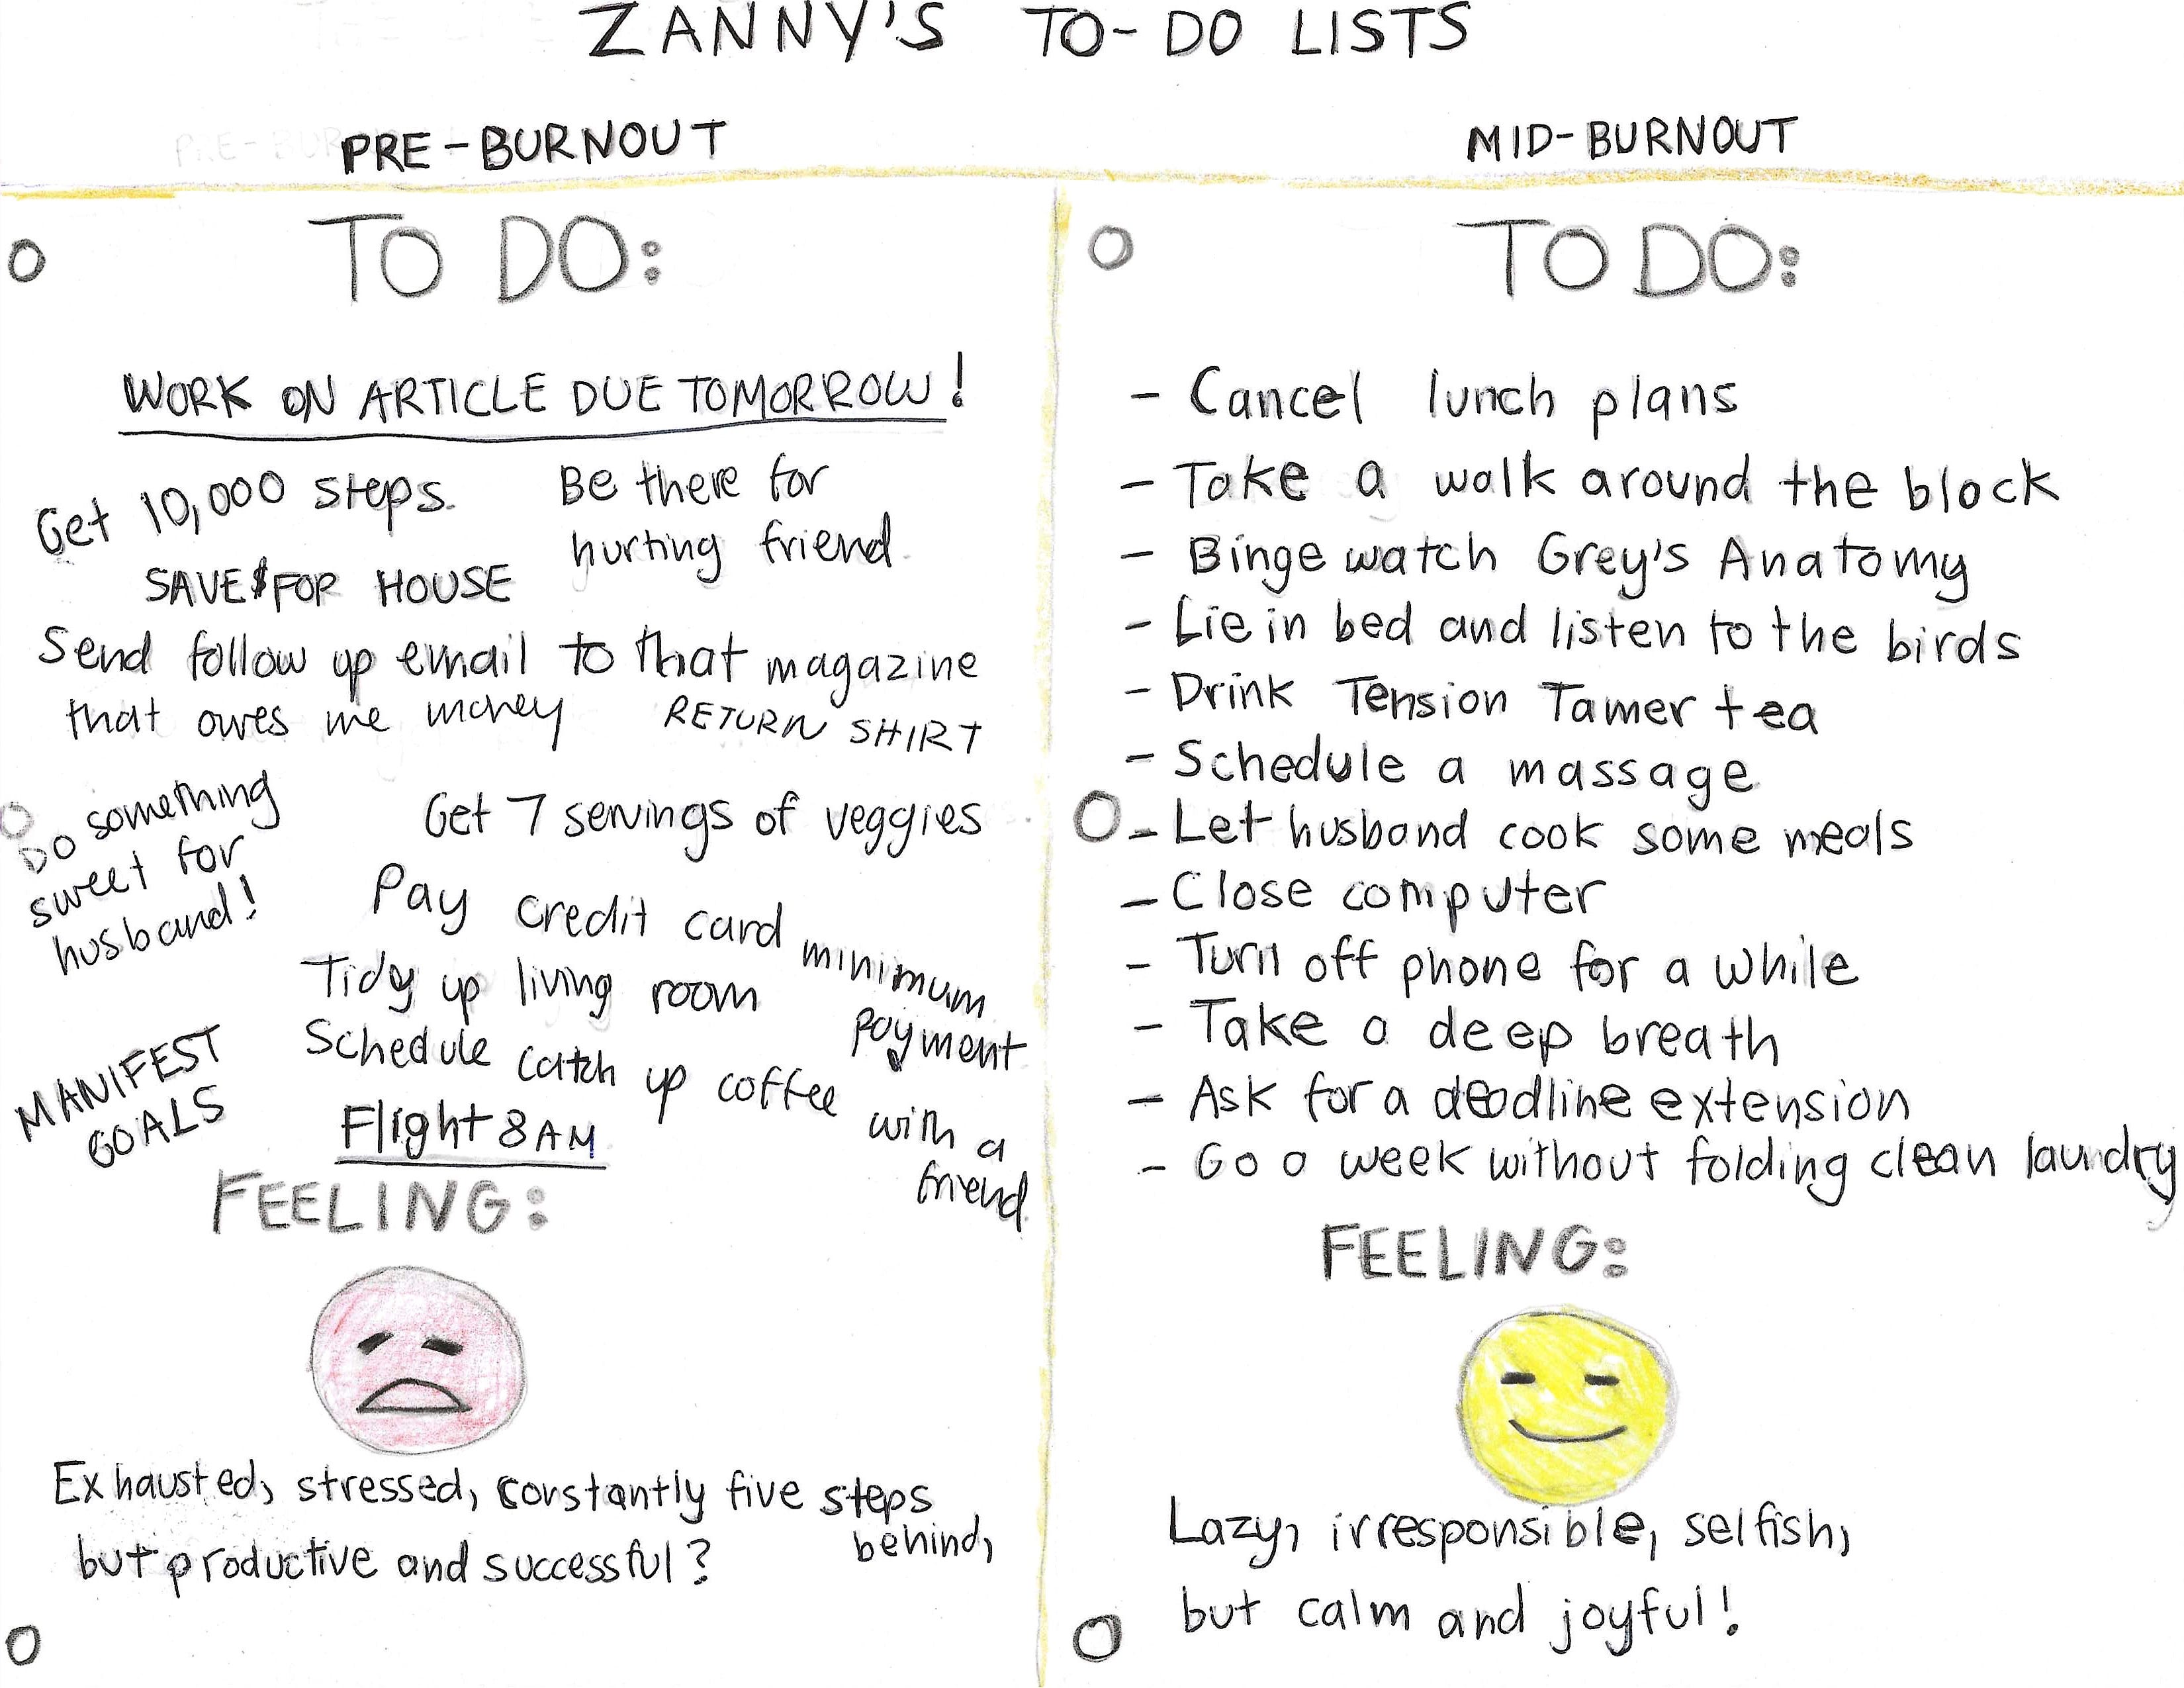 ZANNY'S TO-DO LISTS
PRE-BURNOUT
TO DO:
WORK ON ARTICLE DUE TOMORROW!
Get 10,000 steps.
Be there for
hurting friend
SAVE $ FOR HOUSE
Send follow up email to that magazine
that owes me money
RETURN SHIRT
Do something
sweet for
husband!
Get 7 servings of veggies
Pay credit card minimum
payment
Tidy up living room
Schedule catch up coffee with a
friend
MANIFEST
GOALS
Flight 8 AM
FEELING:
Exhausted, stressed, constantly five steps
behind,
but productive and successful?
MID-BURNOUT
TO DO:
- Cancel lunch plans
- Take a walk around the block
- Binge watch Grey's Anatomy
- Lie in bed and listen to the birds
- Drink Tension Tamer tea
- Schedule a massage
- Let husband cook some meals
- Close computer
- Turn off phone for a while
- Take a deep breath
- Ask for a deadline extension
- Go a week without folding clean laundry
FEELING:
Lazy, irresponsible, selfish,
but calm and joyful!